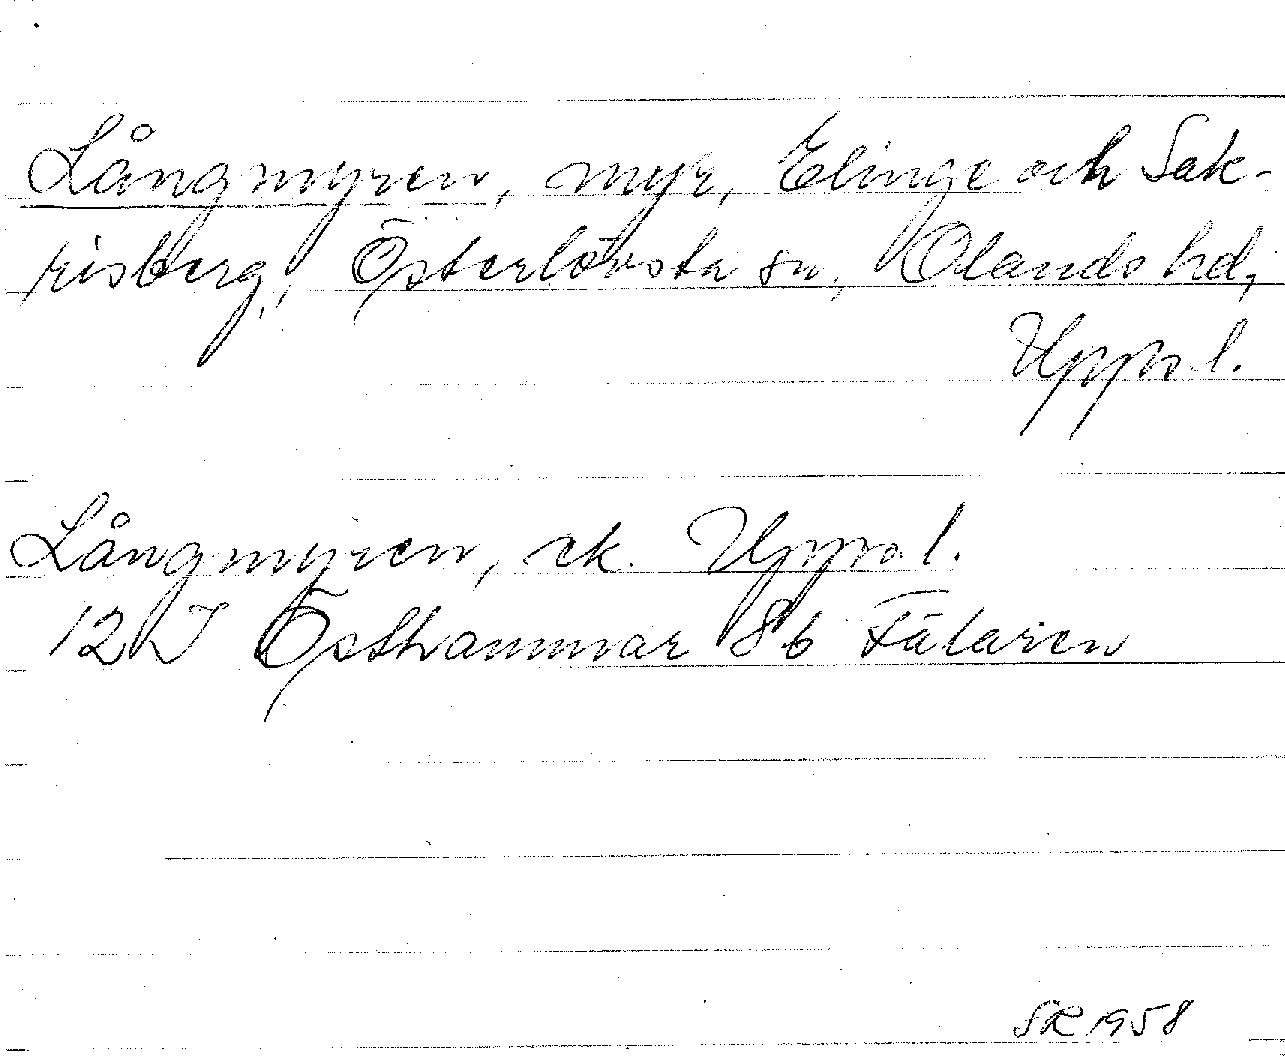 Långmyren, myr, Elinge och Sak-
risberg, Österlövsta sn, Olands hd,
Uppsl.
Långmyren, ek. Uppsl.
12 I Östhammar 8b Fälaren
SR 1958